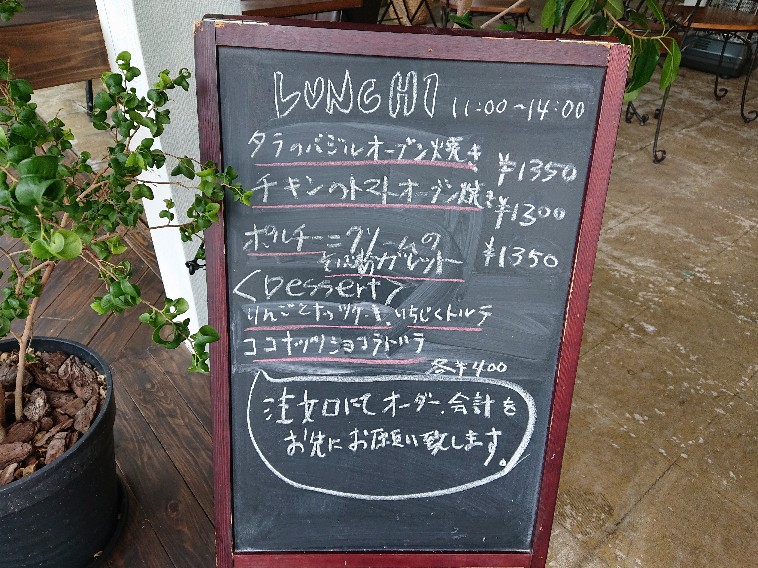 LUNCH! 11:00~14:00
タラのバジルオーブン焼き ¥1350
チキンのトマトオーブン焼き ¥1300
ポルチーニクリームの ¥1350
そば粉ガレット
<Dessert>
りんごとナッツケーキ、いちじくトルテ
ココナッツショコラトルテ
各¥400
注文口にてオーダー、会計を
お先にお願い致します。